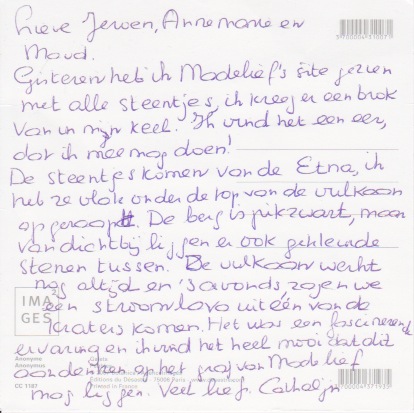 Lieve Jeroen, Annemarie en
Maud.
Gisteren heb ik Madelief's site gezien
met alle steentjes, ik kreeg er een brok
van in mijn keel. Ik vind het een eer,
dat ik mee mag doen!
De steentjes komen van de Etna, ik
heb ze vlak onder de top van de vulkaan
opgeraapt. De berg is pikzwart, maar
van dichtbij liggen er ook gekleurde
stenen tussen. De vulkaan werkt
nog altijd en 's avonds zagen we
een stroom lava uit één van de
kraters komen. Het was een fascinerende
ervaring en ik vind het heel mooi dat dit
aandenken op het graf van Madelief
mag liggen. Veel liefs. Cathelijn
IMA
GES
Anonyme
Anonymous
CC 1187
Editions du Désastre
75006 Paris
Printed in France